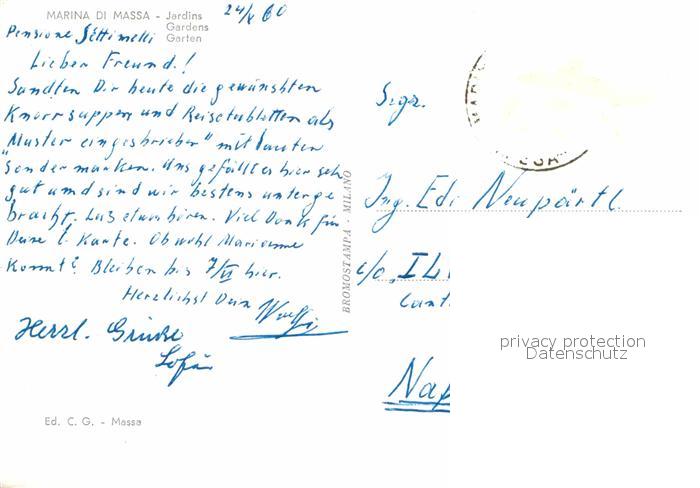 MARINA DI MASSA - Jardins
Gardens
Garten
24/X 60
Pensione Settimelli
Lieber Freund!
Sandten Dir heute die gewünshten
Knorrsuppen und Reisetabletten als
"Muster eingeshrieben" mit lauten
Sondermarken. Uns gefällt es hier sehr
gut und sind wir bestens unterge
bracht. Laß etwas hören. Viel Dank für
Deine l. Karte. Ob wohl Marianne
kommt? Bleiben bis 7/VI hier.
Herzlichst Dein
Herzl. Grüße
BROMOSTAMPA - MILANO
Sigr.
Ing. Edi Neupärtl
c/o "IL
Cant.
Nap
privacy protection
Datenschutz
Ed. C. G. - Massa